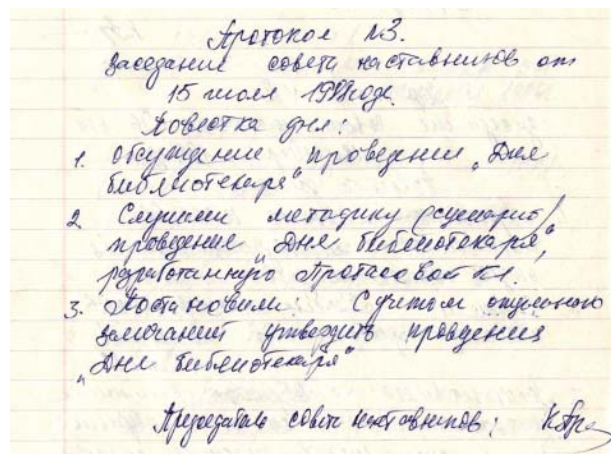 Протокол №3.
заседание совета наставников от
15 июля 19 года.
Повестка дня:
1. Обсуждение проведения „Дня
библиотекаря"
2. Слушали методику (сценарий)
проведение „Дня библиотекаря",
разработанную Протасовой К.
3. Постановили: С учётом
замечаний утвердить проведения
„Дня библиотекаря"
Председатель совета наставников: